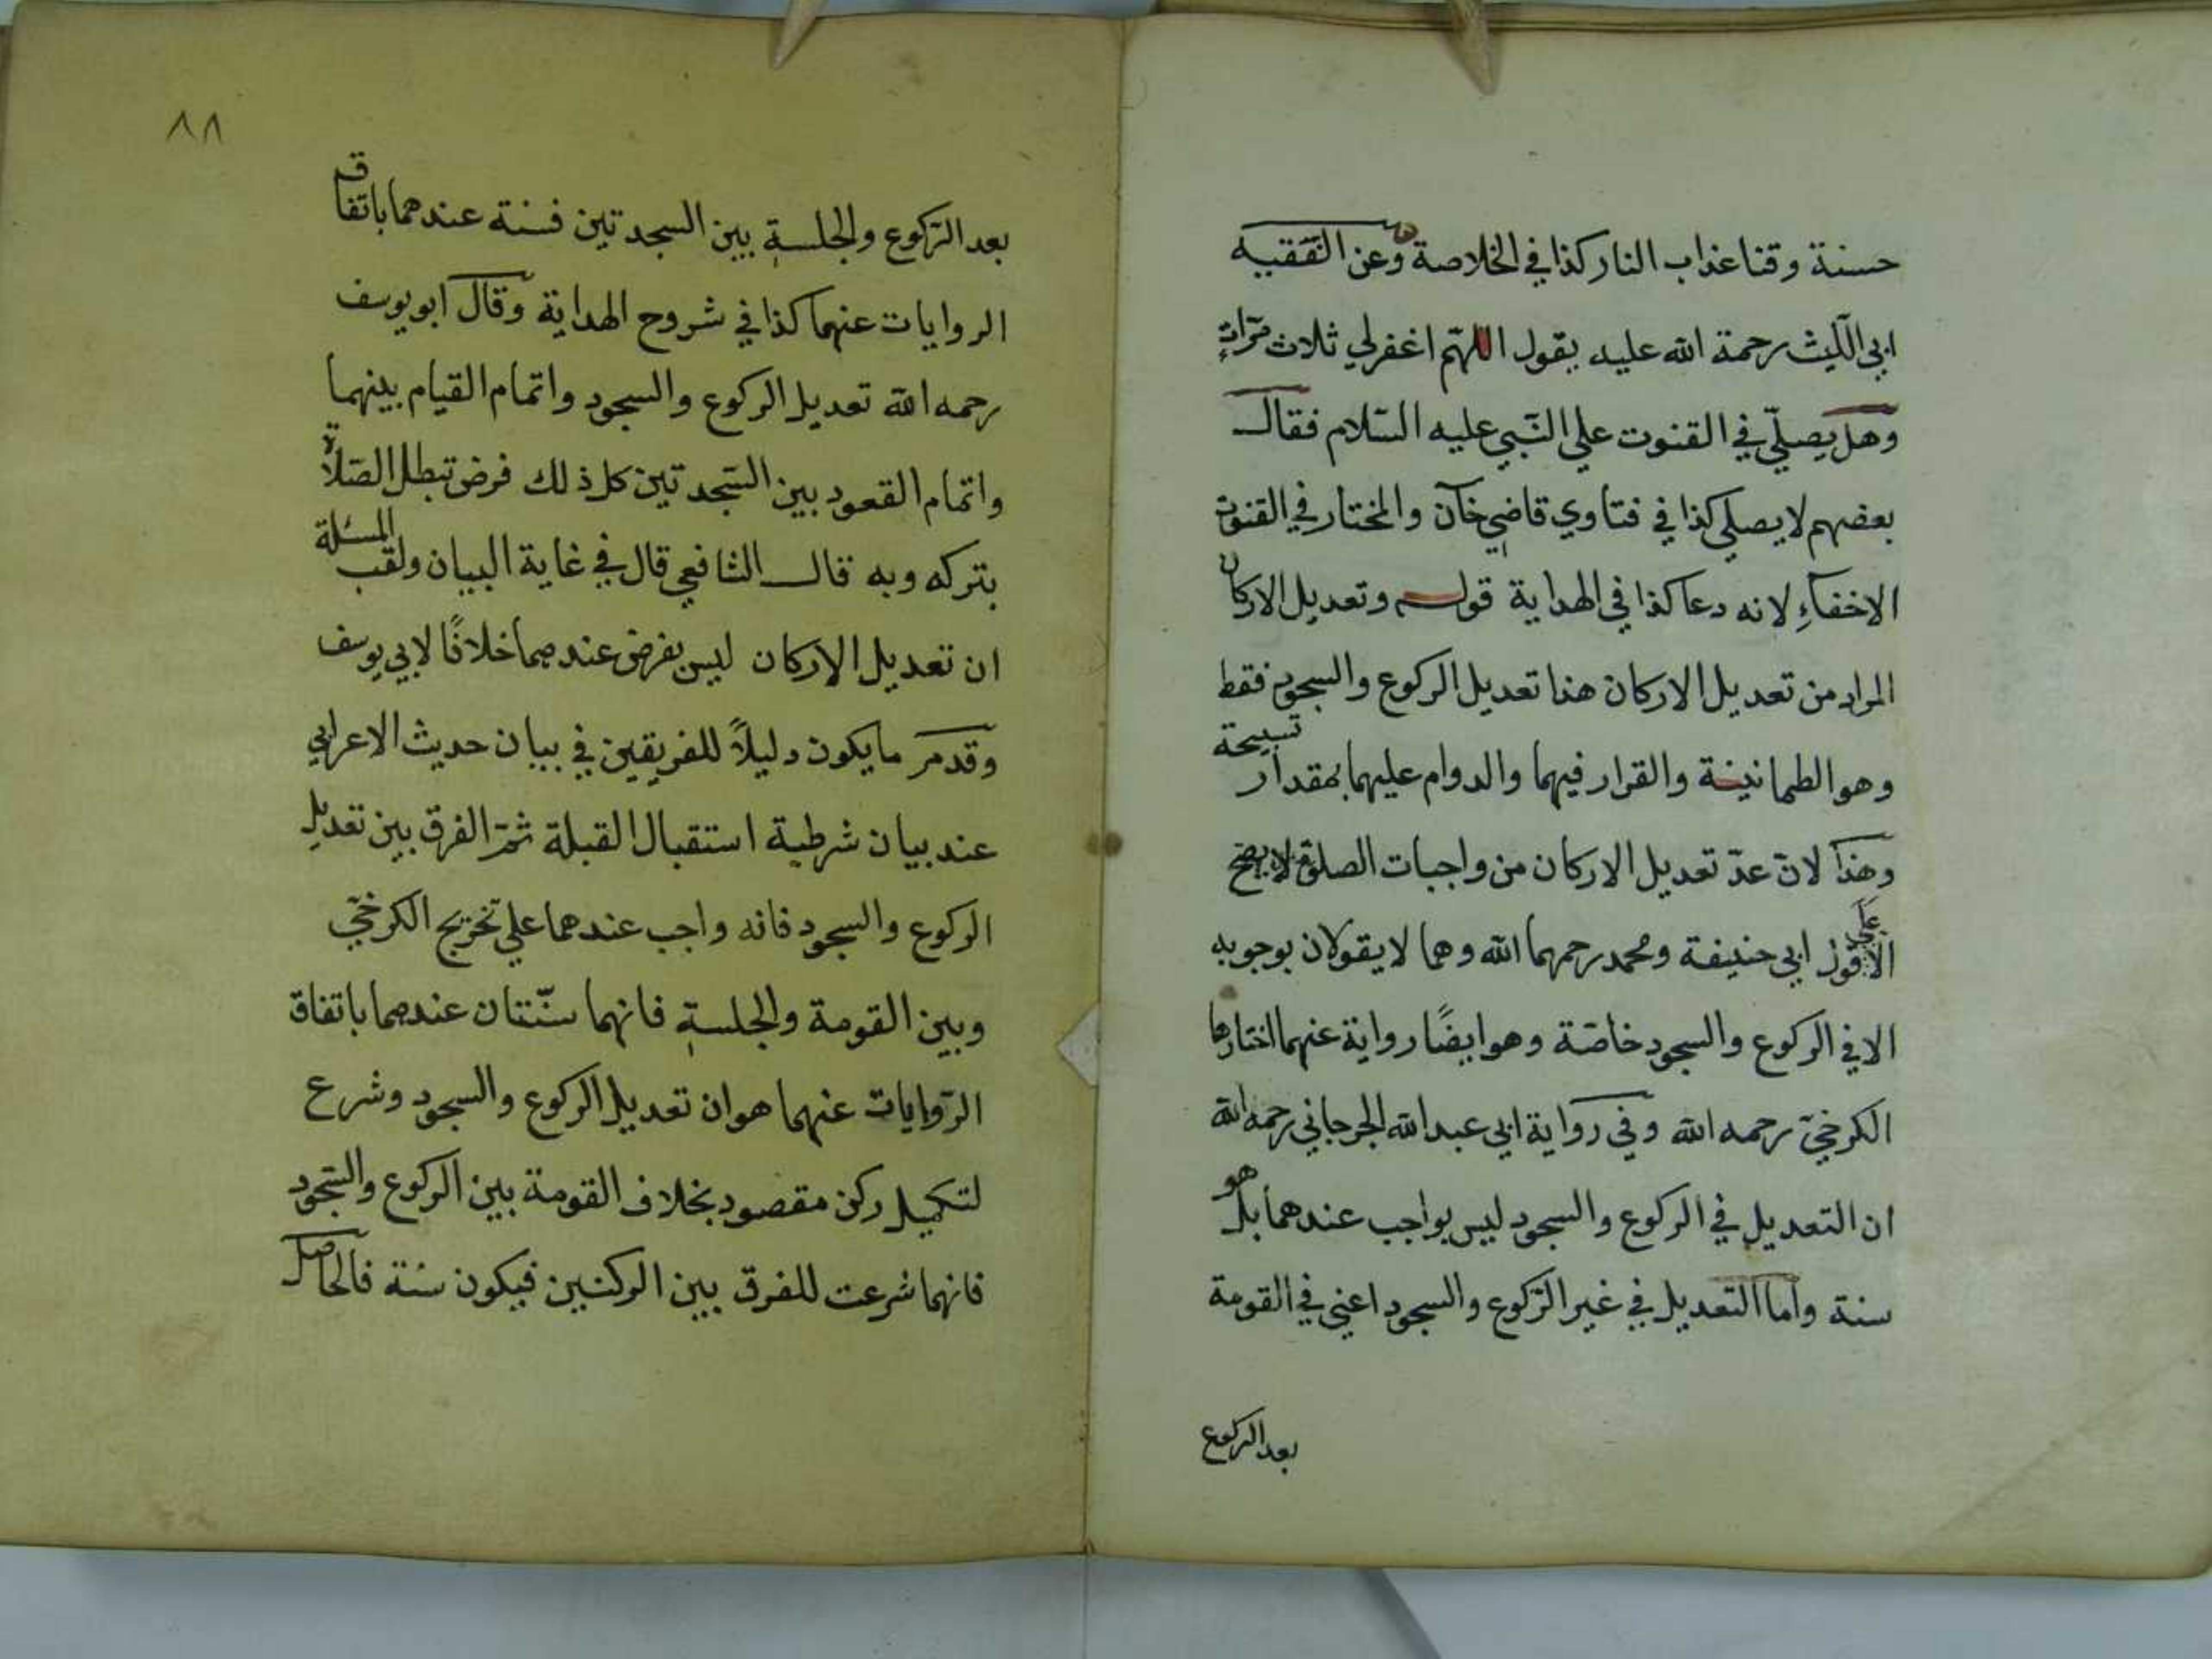 حسنة وقنا عذاب النار كذا في الخلاصة وعن الفقيه
ابي الليث رحمة الله عليه يقول اللهم اغفرلي ثلاث مرات
وهل يصلّي في القنوت علي النّبي عليه السّلام فقال
بعضهم لا يصلي كذا في فتاوي قاضي خان والمختار في القنوت
الاخفاءِ لانه دعا كذا في الهداية قوله وتعديل الاركان
المراد من تعديل الاركان هنا تعديل الركوع والسجود فقط
وهو الطمانينة والقرار فيهما والدوام عليهما بمقدار تسبيحة
وهذا لانّ عدّ تعديل الاركان من واجبات الصلوة لا يصح
الا على قول ابي حنيفة ومحمد رحمهما الله وهما لا يقولان بوجوبه
الا في الركوع والسجود خاصّة وهو ايضًا رواية عنهما اختارها
الكرخيّ رحمه الله وفي رواية ابي عبد الله الجرجاني رحمه الله
ان التعديل في الركوع والسجود ليس بواجب عندهما بل هو
سنة واما التّعديل في غير الرّكوع والسجود اعني في القومة
بعد الركوع
٨٨
بعد الرّكوع والجلسة بين السجدتين فسنة عندهما باتفاق
الروايات عنهما كذا في شروح الهداية وقال ابو يوسف
رحمه الله تعديل الركوع والسجود واتمام القيام بينهما
واتمام القعود بين السّجدتين كل ذلك فرض تبطل الصّلاة
بتركه وبه قال الشافعي قال في غاية البيان ولقب المسئلة
ان تعديل الاركان ليس بفرض عندهما خلافًا لابي يوسف
وقد مر ما يكون دليلاً للفريقين في بيان حديث الاعرابي
عند بيان شرطية استقبال القبلة ثمّ الفرق بين تعديل
الركوع والسجود فانه واجب عندهما علي تخريج الكرخيّ
وبين القومة والجلسة فانهما سنّتان عندهما باتفاق
الرّوايات عنهما هو ان تعديل الركوع والسجود وشرع
لتكميل ركن مقصود بخلاف القومة بين الركوع والسّجود
فانهما شرعت للفرق بين الركنين فيكون سنة فالحاصل